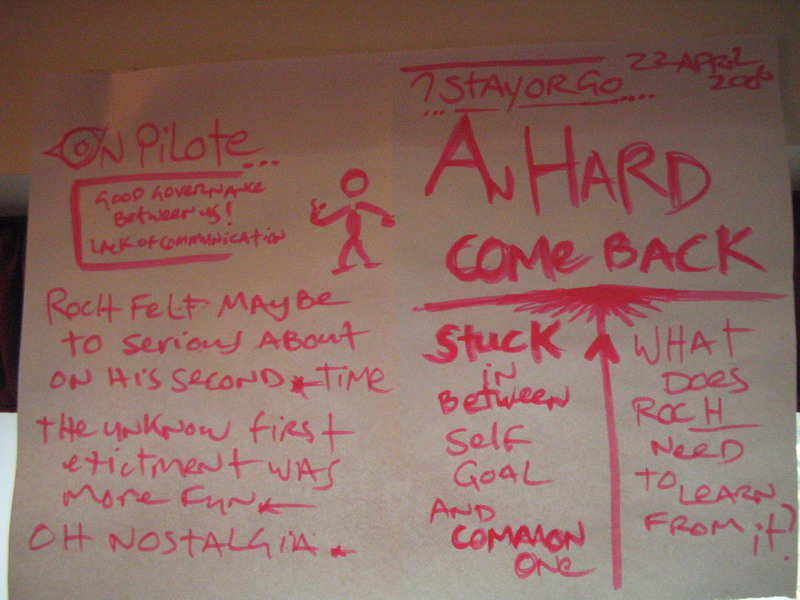 ON PiLOTE...
GOOD GOVERNANCE
BETWEEN US!
LACK OF COMMUNICATION
ROCH FELT MAYBE
TO SERIOUS ABOUT
ON HIS SECOND TIME
THE UNKNOW FIRST
EXICTMENT WAS
MORE FUN
OH NOSTALGIA.
? STAY OR GO
22 APRIL
2006
AN HARD
COME BACK
STUCK
IN
BETWEEN
SELF
GOAL
AND
COMMON
ONE
WHAT
DOES
ROCH
NEED
TO LEARN
FROM iT?